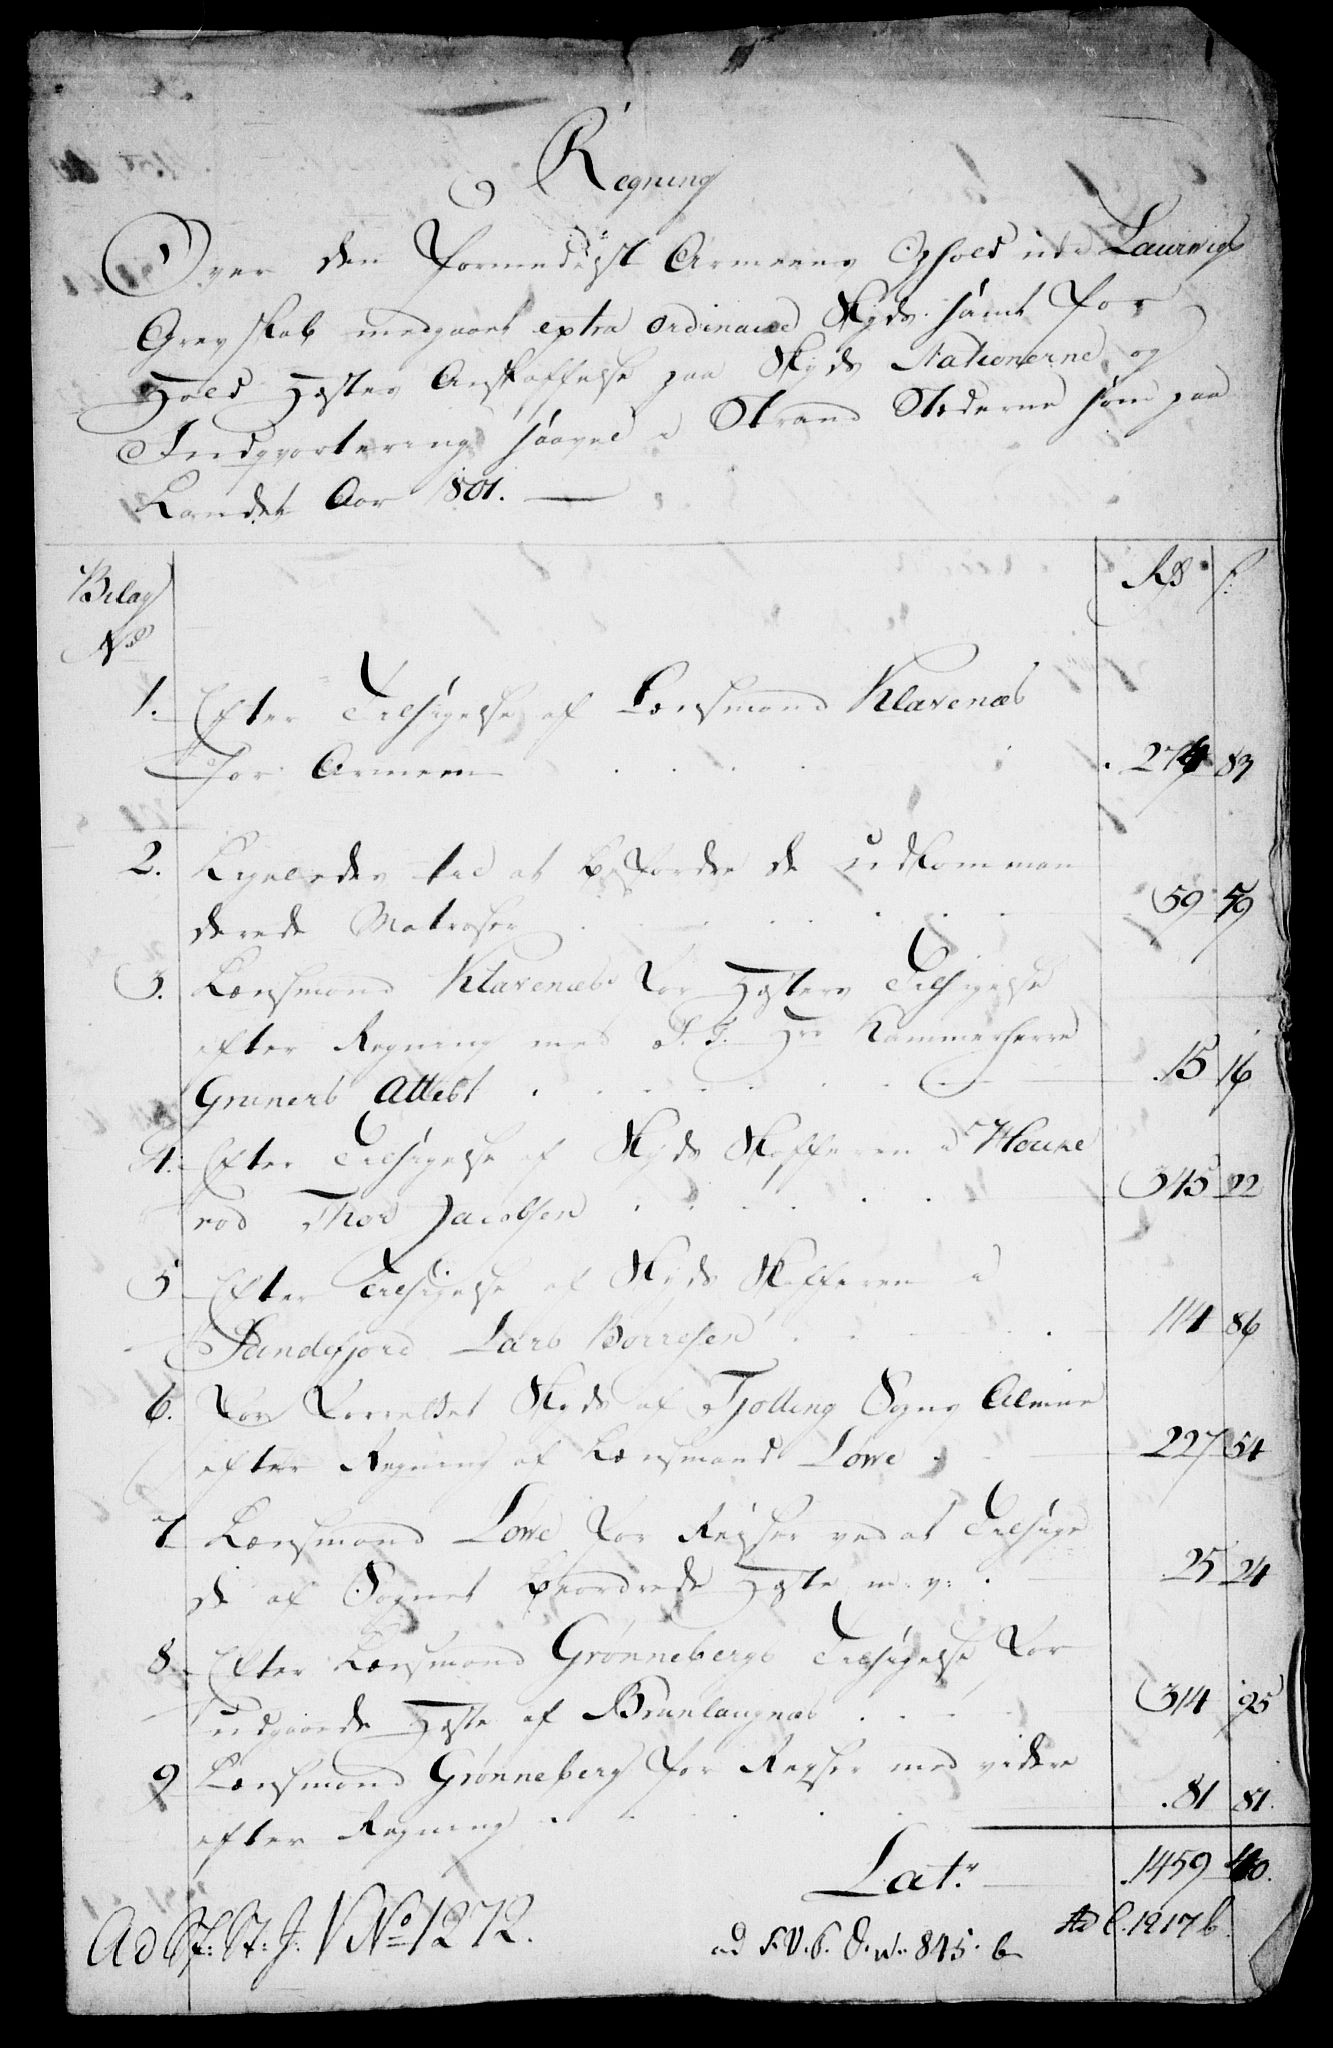 Regning
Over den formedelst Armeens Ophold udi Laurvigs
Grevskab medgaaet extra ordinaire Skyds samt for
Hold Hæstes Anskaffelse paa Skyds Stationerne, og
Indqvartering saavel i Strand Stæderne som paa
Landet Aar 1801.
Bilag
No
Rd s:
1. Efter Tilsigelse af Lænsmand Klavenæs
for Armeen . . . . 274 83
2. Ligeledes til at befordre de udkomman
derede Matroser . . . . 59 59
3. Lænsmand Klavenæs for Hæstes Tilsigelse
efter Regning med S. T. Hr Kammerherre
Gruners Attest . . . . 15 16
4. Efter Tilsigelse af Skyds Skafferen i Houke
rød Thor Jacobsen . . . . 345 22
5 Efter Tilsigelse af Skyds Skafferen i
Sandefjord Lars Børresen . . . . 114 86
6. For Forrettet Skyds af Tjølling Sogns Almue
efter Regning af Lænsmand Løwe . 227 54
7 Lænsmand Løwe for Rejser ved at Tilsige
de af Sognet beordrede Hæste m: v: . 25 24
8 Efter Lænsmand Grønnebergs Tilsigelse for
udgaaede Hæste af Brunlaugnæs . . . . 314 95
9 Lænsmand Grønneberg for Rejser med videre
efter Regning . . . . 81 81.
Lat. 1459 40.
Ad St: St: J: V No 1272.
Ad C. 1217 b
ad F. V. 6. D. No 845. b